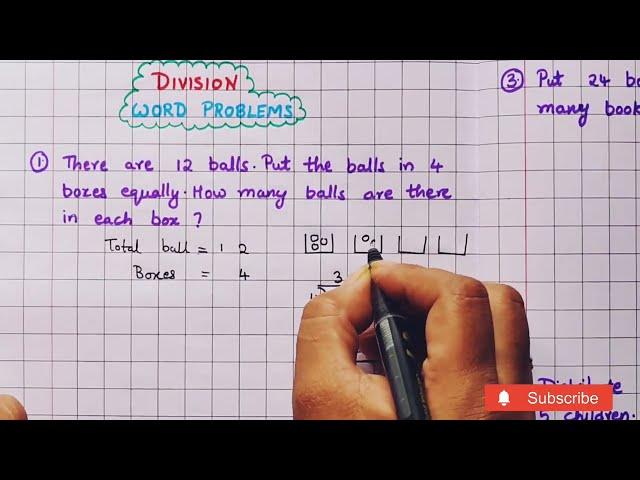 DIVISION
WORD PROBLEMS
① There are 12 balls. Put the balls in 4
boxes equally. How many balls are there
in each box ?
Total ball = 1 2
Boxes = 4
3
③ Put 24 bo
many book
Distribute
5 children.
Subscribe